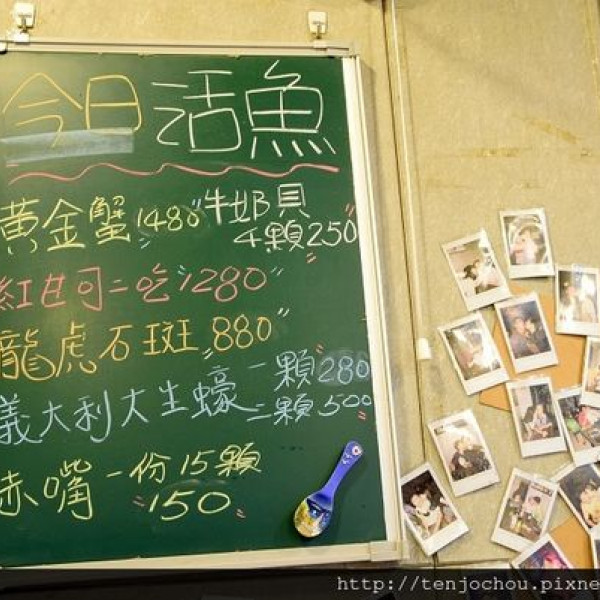 今日活魚
黃金蟹1480
牛奶貝
4顆250
紅甘可二吃1280
龍虎石斑880
義大利大生蠔一顆280
二顆500
赤嘴一份15顆
150
http://tenjochou.pixne